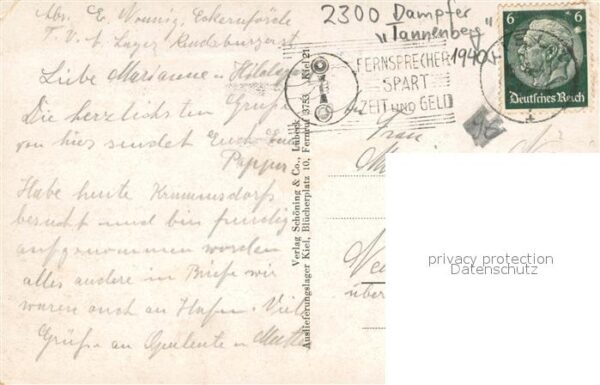 Abs. E. Eckernförde
T. V. A Lager Rendsburgerst
Liebe Marianne u
Die herzlichsten Grüße
von hier sendet Euch Euer
Pappa.
Habe heute
besucht und bin freudig
aufgenommen worden
alles andere in Briefe wir
waren auch am Hafen. Viele
Grüße an u Mutter
Verlag Schöning & Co., Lübeck
Auslieferungslager Kiel, Blücherplatz 10, Fernruf 3753 Kiel 21
2300 Dampfer
"Tannenberg"
1940
FERNSPRECHER
SPART
ZEIT UND GELD
6 6
Deutsches Reich
Frau
über
privacy protection
Datenschutz